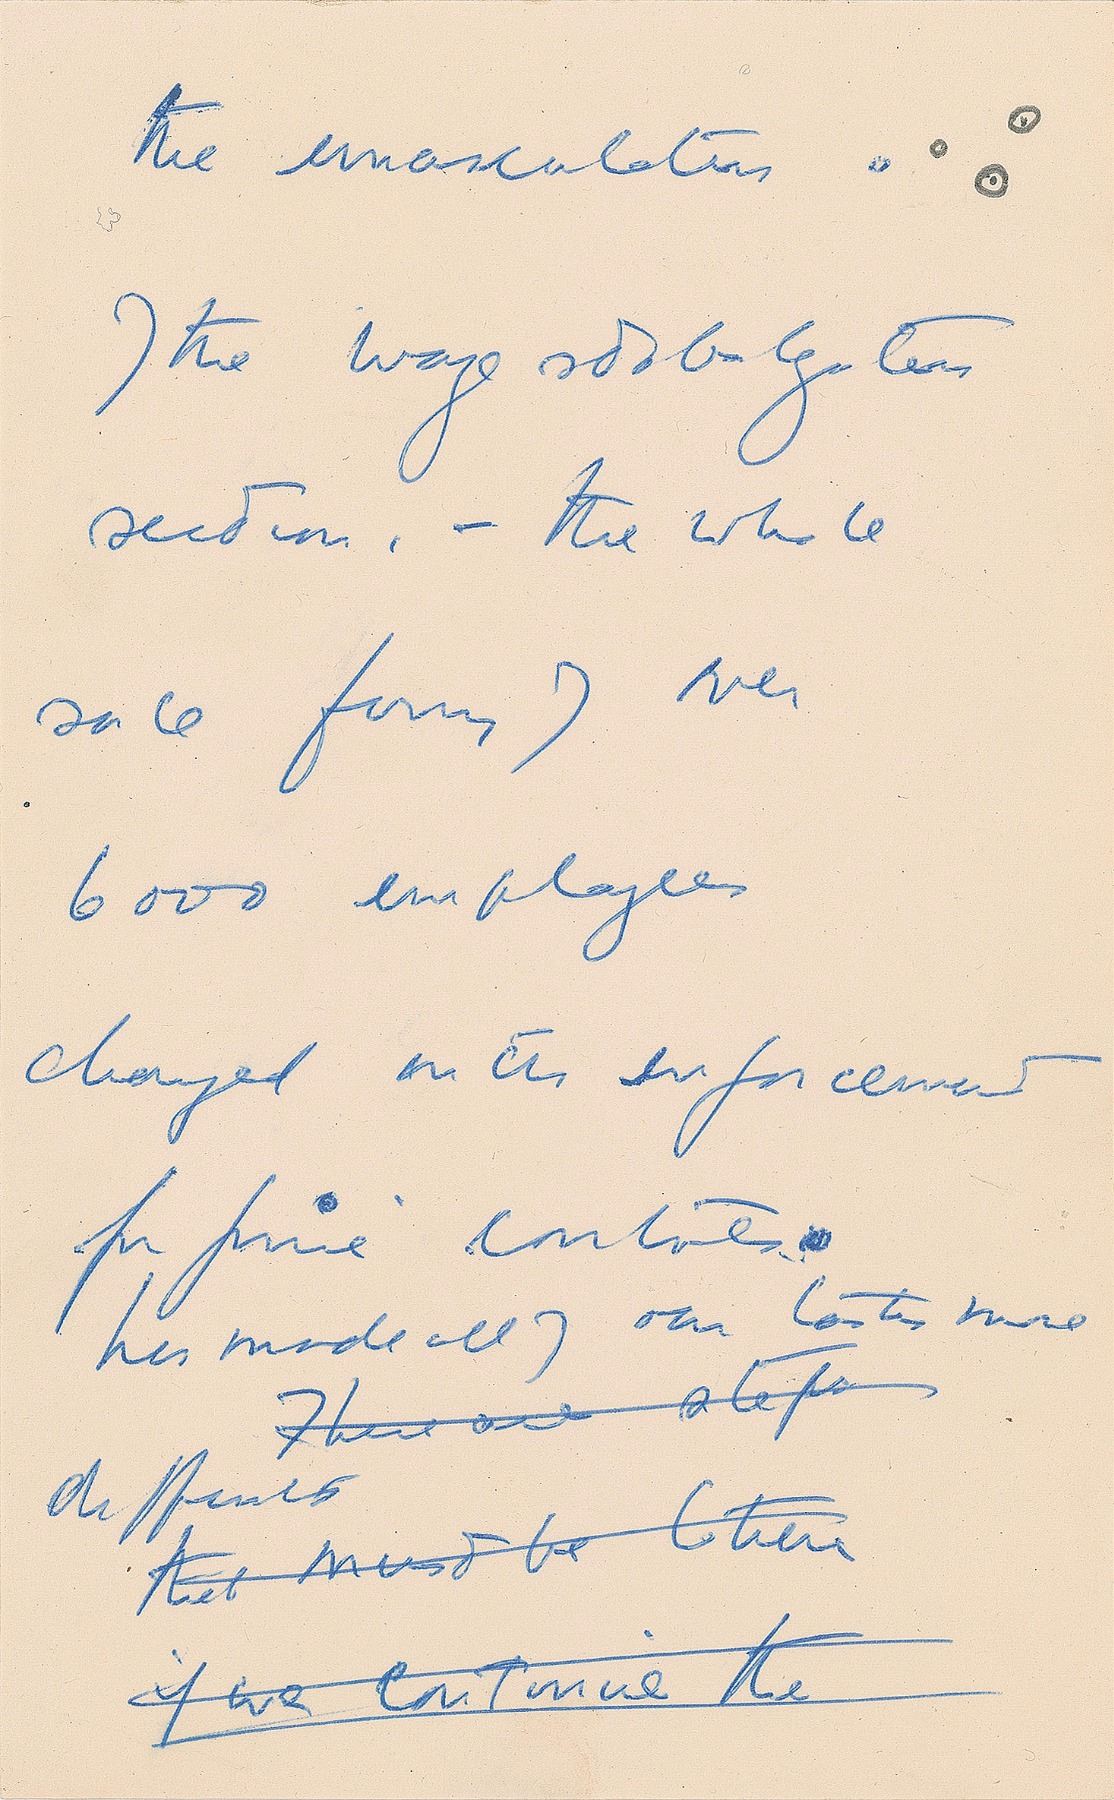 the emasculation
of the wage stabilization
section, - the whole
sale firing of over
6000 employees
charged with the enforcement
for price controls
has made all of our tasks more
There are steps
difficult
that must be taken
if we continue the